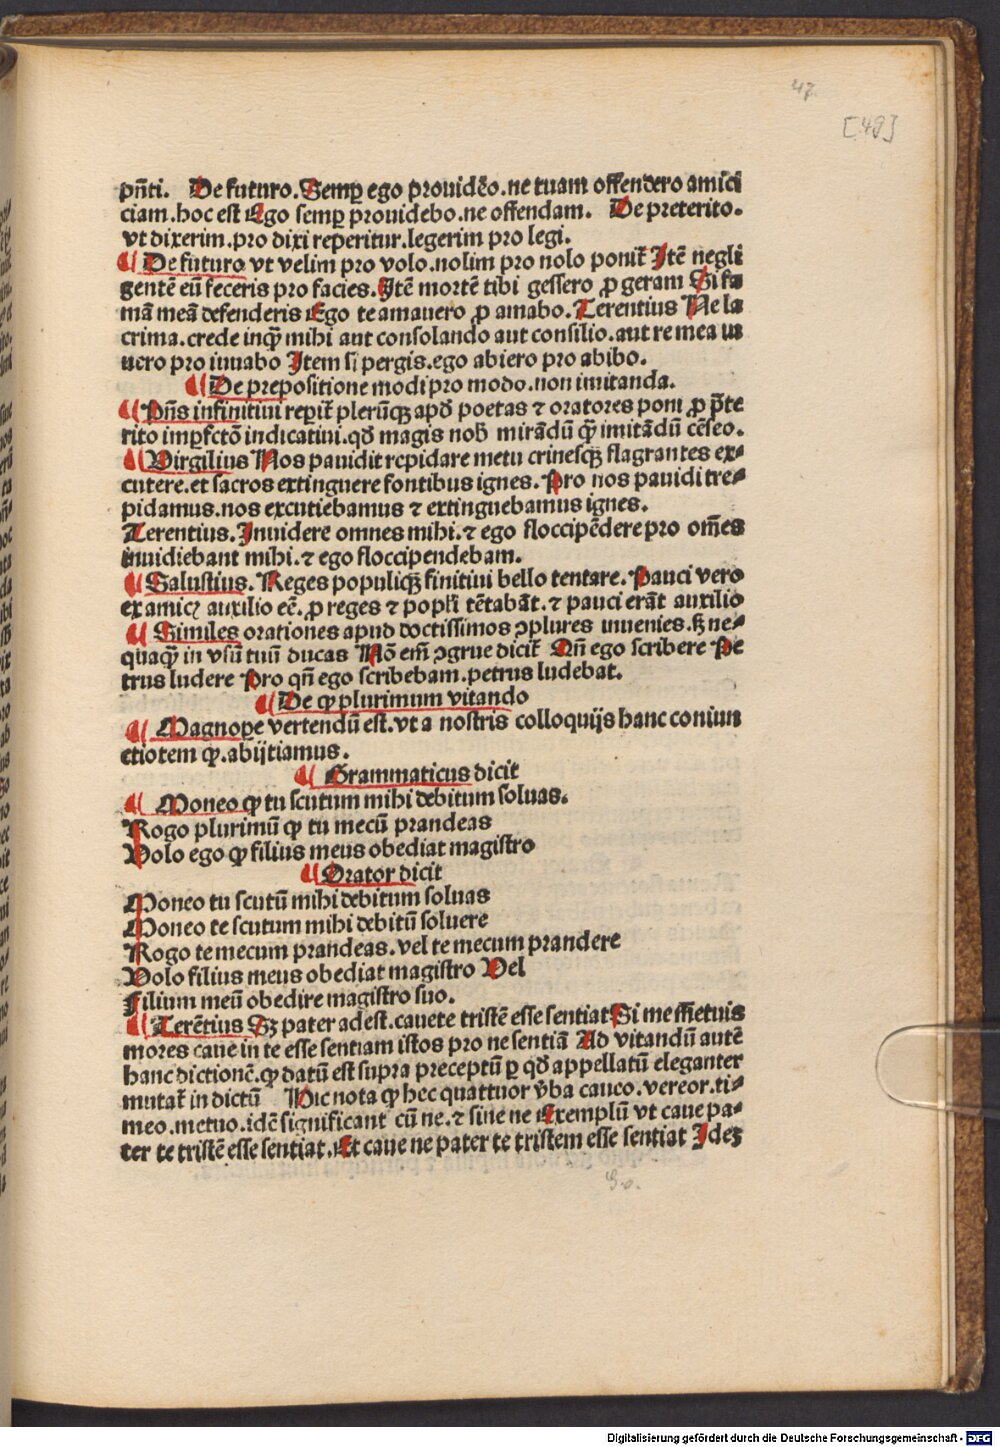 47
[49]
pñti. De futuro. Semꝑ ego prouidẽo. ne tuam offendero amici
ciam. hoc est Ego semꝑ prouidebo. ne offendam. De preterito.
vt dixerim. pro dixi reperitur. legerim pro legi.
De futuro vt velim pro volo. nolim pro nolo ponit᷑ Itẽ negli
gentẽ eũ feceris pro facies. Itẽ mortẽ tibi gessero ꝓ geram Si fa
mã meã defenderis Ego te amauero ꝓ amabo. Terentius Ne la
crima. crede inqͣꝫ mihi aut consolando aut consilio. aut re mea iu
uero pro iuuabo Item si pergis. ego abiero pro abibo.
De prepositione modi pro modo. non imitanda.
Pñs infinitiui reꝑit᷑ plerũqꝫ apď poetas ⁊ oratores poni ꝓ p̃te
rito imꝑfctõ indicatiui. qď magis nob̃ mirãdũ qͣꝫ imitãdũ cẽseo.
Virgilius Nos pauidi trepidare metu crinesqꝫ flagrantes ex⸗
cutere. et sacros extinguere fontibus ignes. Pro nos pauidi tre⸗
pidamus. nos excutiebamus ⁊ extinguebamus ignes.
Terentius. Inuidere omnes mihi. ⁊ ego floccipẽdere pro om̃es
inuidiebant mihi. ⁊ ego floccipendebam.
Salustius. Reges populiqꝫ finitiui bello tentare. Pauci vero
ex amicꝭ auxilio eẽ. ꝓ reges ⁊ popl̃i tẽtabãt. ⁊ pauci erãt auxilio
Similes orationes apud doctissimos ꝯplures inuenies. sꝫ ne⸗
quaqͣꝫ in vsũ tuũ ducas Nõ em̃ ꝯgrue dicit᷑ Qñ ego scribere Pe
trus ludere Pro qñ ego scribebam. petrus ludebat.
De ꝙ plurimum vitando
Magnoꝑe vertendũ est. vt a nostris colloquijs hanc coniun
ctiotem ꝙ. abijtiamus.
Grammaticus dicit
Moneo ꝙ tu scutum mihi debitum soluas.
Rogo plurimũ ꝙ tu mecũ prandeas
Volo ego ꝙ filius meus obediat magistro
Orator dicit
Moneo tu scutũ mihi debitum soluas
Moneo te scutum mihi debitũ soluere
Rogo te mecum prandeas. vel te mecum prandere
Volo filius meus obediat magistro Vel
Filium meũ obedire magistro suo.
Terẽtius Sꝫ pater adest. cauete tristẽ esse sentiat Si me ffietuis
mores caue in te esse sentiam istos pro ne sentiã Ad vitandũ autẽ
hanc dictionẽ. ꝙ datũ est supra preceptũ ꝑ qď appellatũ eleganter
mutat᷑ in dictũ Hic nota ꝙ hec quattuor ṽba caueo. vereor. ti⸗
meo. metuo. idẽ significant cũ ne. ⁊ sine ne Exemplũ vt caue pa⸗
ter te tristẽ esse sentiat. Et caue ne pater te tristem esse sentiat Ideꝫ
Digitalisierung gefördert durch die Deutsche Forschungsgemeinschaft - DFG